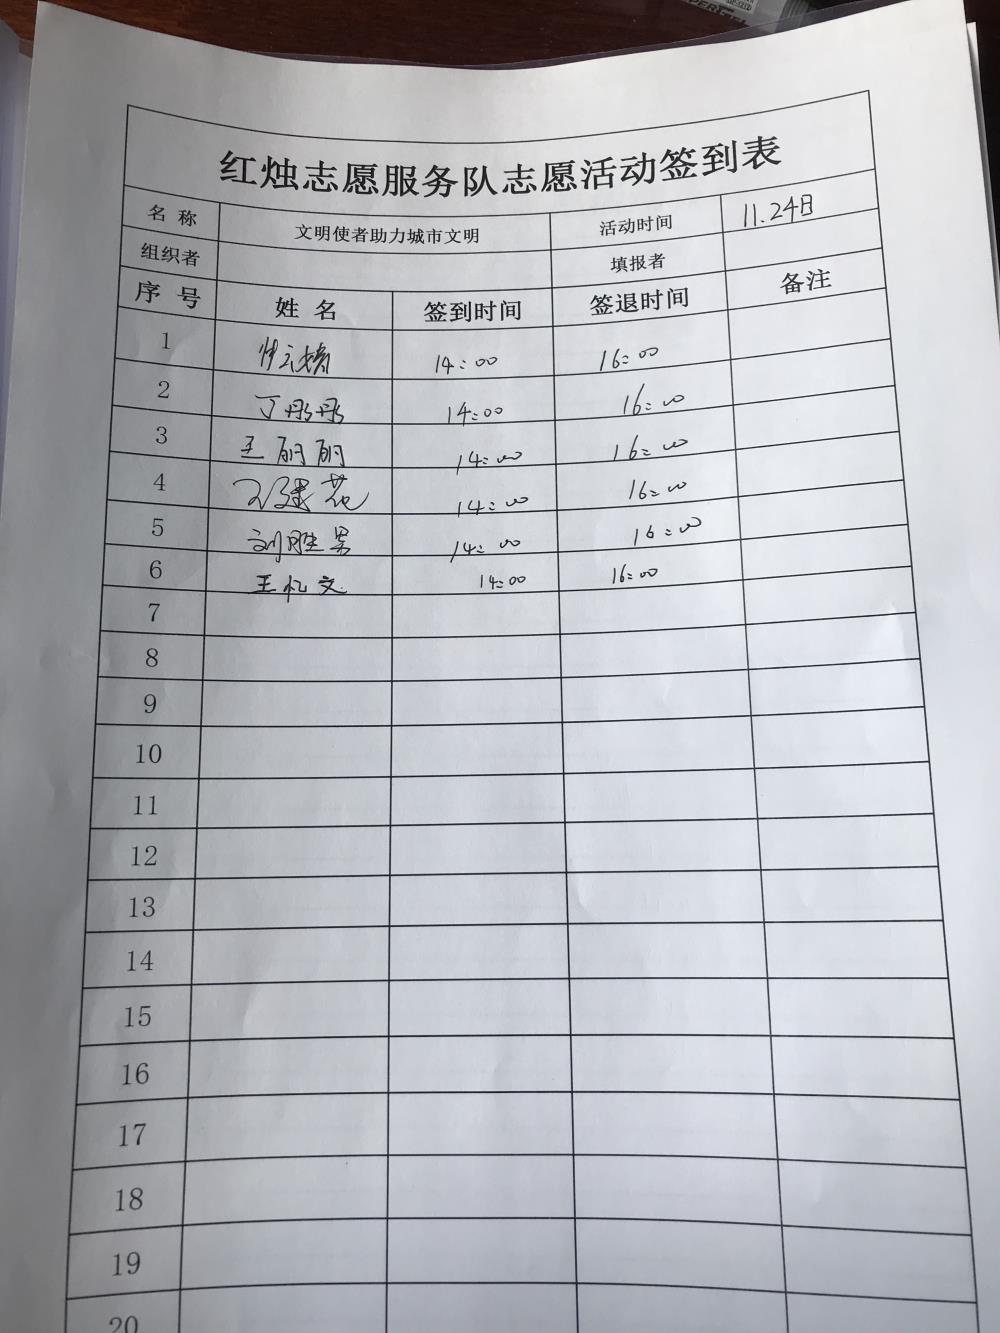 红烛志愿服务队志愿活动签到表
名 称 文明使者助力城市文明 活动时间 11.24日
组织者 填报者
序 号 姓 名 签到时间 签退时间 备注
1 14:00 16:00
2 丁彤彤 14:00 16:00
3 王丽丽 14:00 16:00
4 14:00 16:00
5 刘胜男 14:00 16:00
6 王忆文 14:00 16:00
7
8
9
10
11
12
13
14
15
16
17
18
19
20